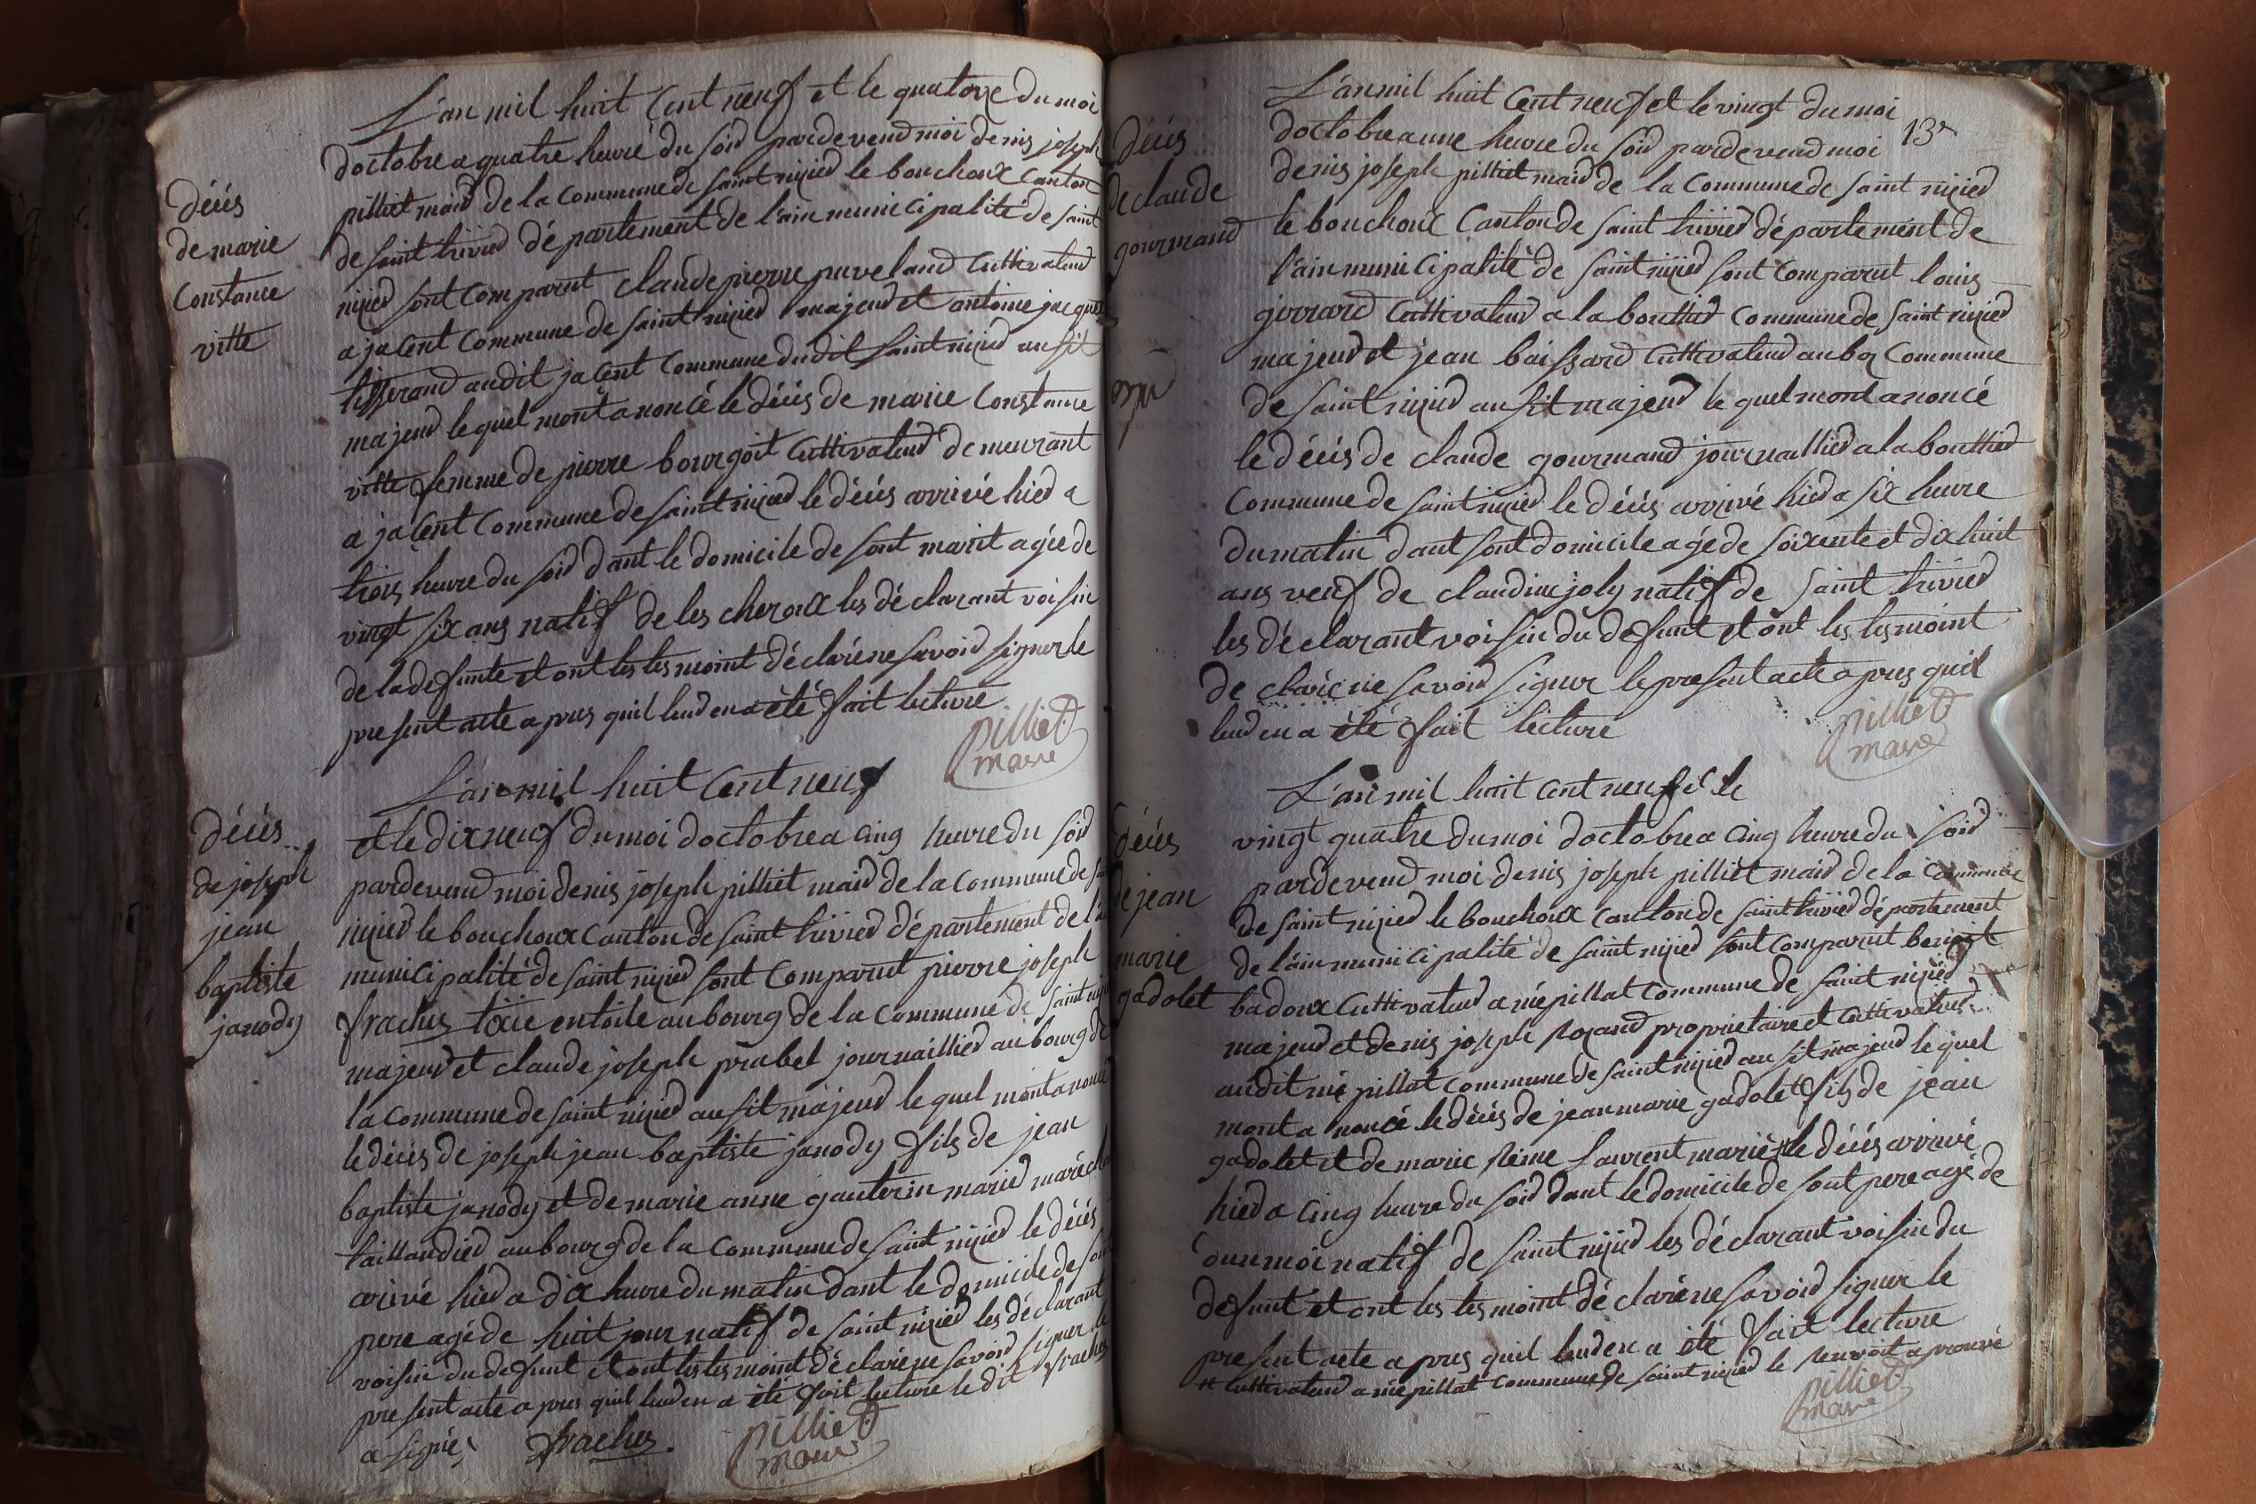 L'an mil huit Cent neuf et le quatorze du moi
doctobre a quatre heure du soir pardevend moi denis joseph
pilliet maire de la Commune de saint nizied le bouchoux Canton
de saint trivied département de l'ain municipalité de saint
nizied sont Comparut claude pierre puveland Cuttivateud
a jacent Commune de saint nizied majeud et antoine jacque
tisserand audit jacent Commune dudit saint nizied ausit
majeud lequel mont anoncé le décés de marie Constance
vitte femme de pierre bourgoit Cuttivateud demeurant
a jacent Commune de saint nizied le décés arrivé hied a
trois heure du soir dant le domicile de sont marit agée de
vingt six ans natif de les cheroux les déclarant voisin
de la defunte et ont les tesmoint déclaré ne savoir signer le
present acte apres quil leud en a été fait lecture
pilliet
maire
décés
de marie
Constance
vitte
L'an mil huit Cent neuf
et le dix neuf du moi doctobre a Cinq heure du soir
pardevend moi denis joseph pilliet maire de la Commune de
nizied le bouchoux Canton de saint trivied département de
municipalité de saint nizied sont Comparut pierre joseph
frachis taxie en toile au bourg de la Commune de saint
majeud et claude joseph prabel journaillied au bourg de
la Commune de saint nizied ausit majeud le quel mont anoncé
le décés de joseph jean baptiste janody fils de jean
baptiste janody et de marie anne gauterin maried
taillandied au bourg de la Commune de saint nizied le décés
arivé hied a dix heure du matin dant le domicile de
pere agé de huit jour natif de saint nizied les déclarant
voisin du defunt et ont les tesmoint déclaré ne savoir signer le
present acte apres quil leud en a été fait lecture le dit frachis
a signé frachis pilliet
maire
décés
de joseph
jean
baptiste
janody
13
L'an mil huit Cent neuf et le vingt du moi
doctobre a une heure du soir pardevend moi
denis joseph pilliet maire de la Commune de saint nizied
le bouchoux Canton de saint trivied département de
l'ain municipalité de saint nizied sont Comparut louis
girrard Cuttivateud a la bouttied Commune de saint nizied
majeud et jean baissard Cuttivateud au Commune
de saint nizied ausit majeud le quel mont anoncé
le décés de claude gourmand journaillied a la bouttied
Commune de saint nizied le décés arrivé hied a six heure
du matin dant sont domicile agé de soixente et dix huit
ans veuf de claudine joly natif de saint trivied
les déclarant voisin du defunt et ont les tesmoint
declaré ne savoir signer le present acte apres quil
leud en a été fait lecture
pilliet
maire
décés
de claude
gourmand
L'an mil huit Cent neuf et le
vingt quatre du moi doctobre a Cinq heure du soir
pardevend moi denis joseph pilliet maire de la Commune
de saint nizied le bouchoux Canton de saint trivied département
de l'ain municipalité de saint nizied sont Comparut benoit
badoux Cuttivateud a népillat Commune de saint nizied
majeud et denis joseph rozand proprietaire et Cuttivateud
audit népillat Commune de saint nizied ausit majeud le quel
mont a noncé le décés de jean marie gadolet fils de jean
gadolet et de marie reine Laurent mariés # le décés arrivé
hied a Cinq heure du soir dant le domicile de sont pere agé de
dun moi natif de saint nizied les déclarant voisin du
defunt et ont les tesmoint déclaré ne savoir signer le
present acte apres quil leud en a été fait lecture
# Cuttivateud a népillat Commune de saint nizied le renvoit aprouvé
pilliet
maire
décés
de jean
marie
gadolet